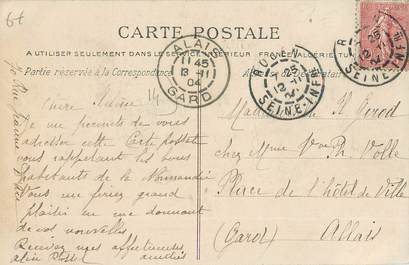 6f
CARTE POSTALE
A UTILISER SEULEMENT DANS LE SERVICE INTÉRIEUR FRANCE ALGÉRIE TU
Partie réservée à la Correspondance
ALAIS
11 45
13 -11
04
GARD
ROUEN
25
12
04
SEINE-INFRE
R
25
12
SEINE-INF
Chère
Je me permets de vous
adresser cette Carte postale
vous rappelant les bons
habitants de la Normandie
Vous me feriez grand
plaisir en me donnant
de vos nouvelles
Recevez mes affectueuses
amitiés
Madame H Gerod
chez Mme Vve Ph. Volle
Place de l'hôtel de Ville
(Gard) Allais